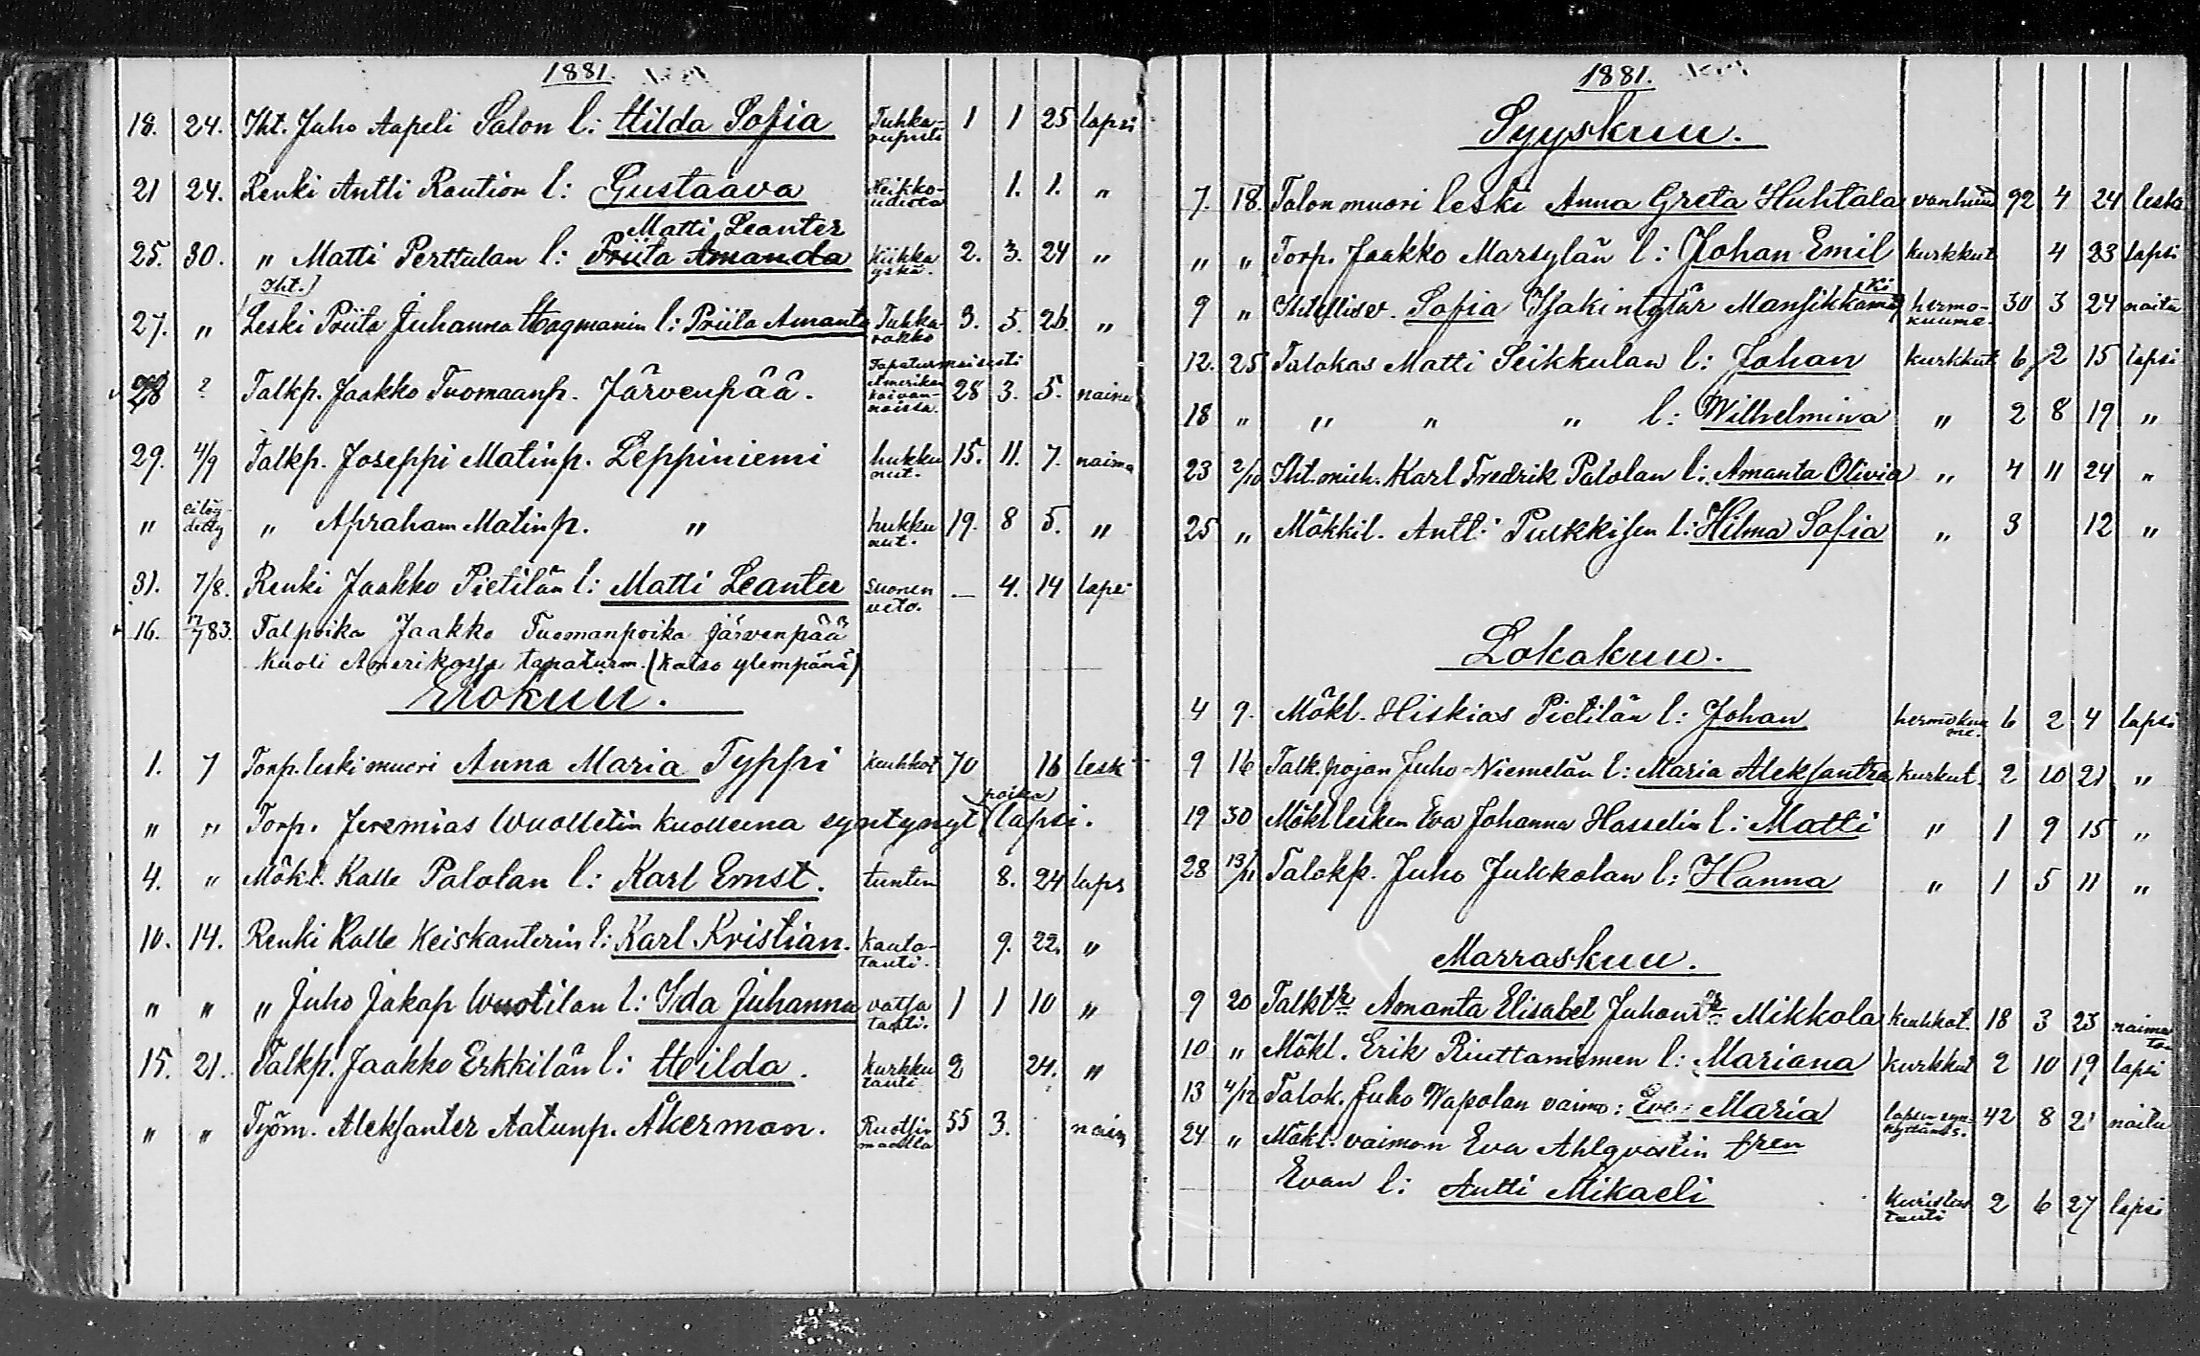 1881.
18. 24. Iht. Juho Aapeli Salon l: Hilda Sofia Tuhka-rupuli 1 1 25 lapsi
21 24. Renki Antti Raution l: Gustaava Heikko-udesta 1. 1. "
Matti Leanter
25. 30. " Matti Perttulan l: Priita Amanda Kiihka yskä. 2. 3. 24 "
Iht.
27. " Leski Priita Juhanna Hagmanin l: Priita Amanta Tuhka-rokko 3. 5. 26. "
28 ? Talkp. Jaakko Tuomaanp. Järvenpää. Tapaturmaisesti Amerikan kaivannoissa. 28 3. 5. nainu
29. 4/9 Talkp. Joseppi Matinp. Leppiniemi hukkunut. 15. 11. 7. naima
" ei löydetty " Apraham Matinp. " hukkunut. 19. 8 5. "
31. 7/8. Renki Jaakko Pietilän l: Matti Leanter suonen veto. — 4. 14 lapsi
16. 17/7 83. Talpoika Jaakko Tuomanpoika Järvenpää
kuoli Amerikassa tapaturm. (katso ylempänä)
Elokuu.
1. 7 Torp. leski muori Anna Maria Typpi keuhkot 70 16 lesk
" " Torp. Jeremias Wuolletin kuolleena syntynyt (poika) lapsi.
4. " Mökl. Kalle Palolan l: Karl Ernst. tuntem 8. 24 laps
10. 14. Renki Kalle Keiskanterin l: Karl Kristian. kaula-tauti. 9. 22. "
" " " Juho Jakap Wuotilan l: Ida Juhanna vatsa tauti. 1 1 10 "
15. 21. Talkp. Jaakko Erkkilän l: Hilda. kurkku tauti 2 24. "
" " Työm. Aleksanter Aatunp. Åkerman. Ruotsin maalla 55 3. nain
1881.
Syyskuu.
7. 18. Talon muori leski Anna Greta Huhtala vanhuus 92 4 24 leski
" " Torp. Jaakko Marsylän l: Johan Emil kurkkut 4 23 lapsi
9 " Itsellisv. Sofia Isakintytär Mansikkamäki hermo-kuume. 30 3 24 naitu
12. 25 Talokas Matti Seikkulan l: Johan kurkkut 6 2 15 lapsi
18 " " " " l: Wilhelmina " 2 8 19 "
23 2/10 Iht. mieh. Karl Fredrik Palolan l: Amanta Olivia " 4 11 24 "
25 " Mökkil. Antti Pulkkisen l: Hilma Sofia " 3 12 "
Lokakuu.
4 9. Mökl. Hiskias Pietilän l: Johan hermokuume. 6 2 4 lapsi
9 16 Talk. pojan Juho Niemelän l: Maria Aleksantra kurkut. 2 10 21 "
19 30 Mökl lesken Eva Johanna Hasselin l: Matti " 1 9 15 "
28 13/11 Talokp. Juho Julkkolan l: Hanna " 1 5 11 "
Marraskuu.
9 20 Talktr Amanta Elisabet Juhontr Mikkola keuhkot. 18 3 23 naimaton
10 " Mökl. Erik Riuttamimen l: Mariana kurkkut 2 10 19 lapsi
13 4/12 Talok. Juho Wapolan vaimo: Eva Maria lapsensynnyttämis. 42 8 21 naitu
24 " Mökl. vaimon Eva Ahlqvistin
Evan l: Antti Mikaeli kuristus tauti 2 6 27 lapsi